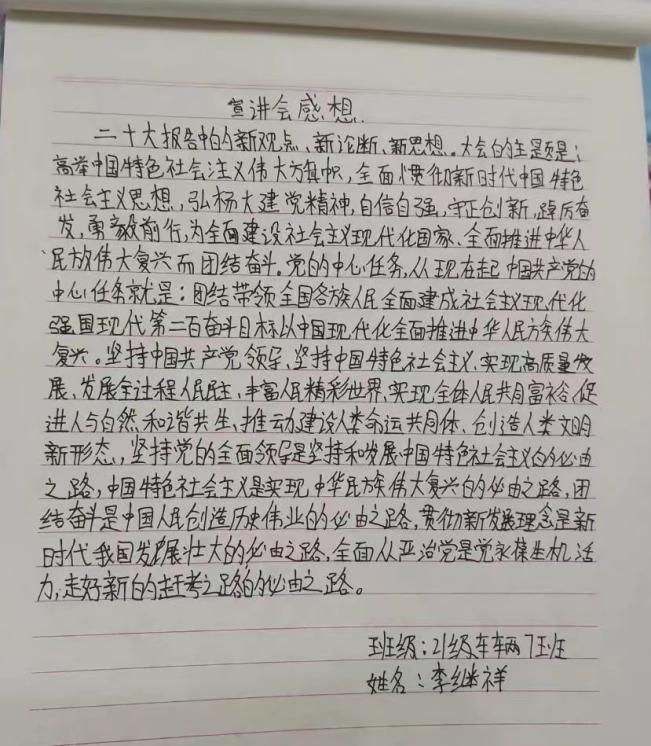 宣讲会感想.
二十大报告中的新观点、新论断、新思想。大会的主题是:
高举中国特色社会主义伟大方旗帜,全面惯彻新时代中国特色
社会主义思想,弘杨大建党精神,自信自强,守正创新,踔厉奋
发,勇毅前行,为全面建设社会主义现代化国家、全面推进中华人
民族伟大复兴而团结奋斗。党的中心任务,从现在起中国共产党的
中心任务就是:团结带领全国各族人民全面建成社会主义现代化
强国现代第二百奋斗目标以中国现代化全面推进中华人民族伟大
复兴。坚持中国共产党领导、坚持中国特色社会主义、实现高质量发
展、发展全过程人民民主、丰富人民精彩世界、实现全体人民共同富裕、促
进人与自然和谐共生、推动建设人类命运共同体、创造人类文明
新形态,坚持党的全面领导是坚持和发展中国特色社会主义的必由
之路,中国特色社会主义是实现中华民族伟大复兴的必由之路,团
结奋斗是中国人民创造历史伟业的必由之路,贯彻新发展理念是新
时代我国发展壮大的必由之路,全面从严治党是党永葆生机活
力,走好新的赶考之路的必由之路。
班级:21级车辆7班
姓名:李继祥